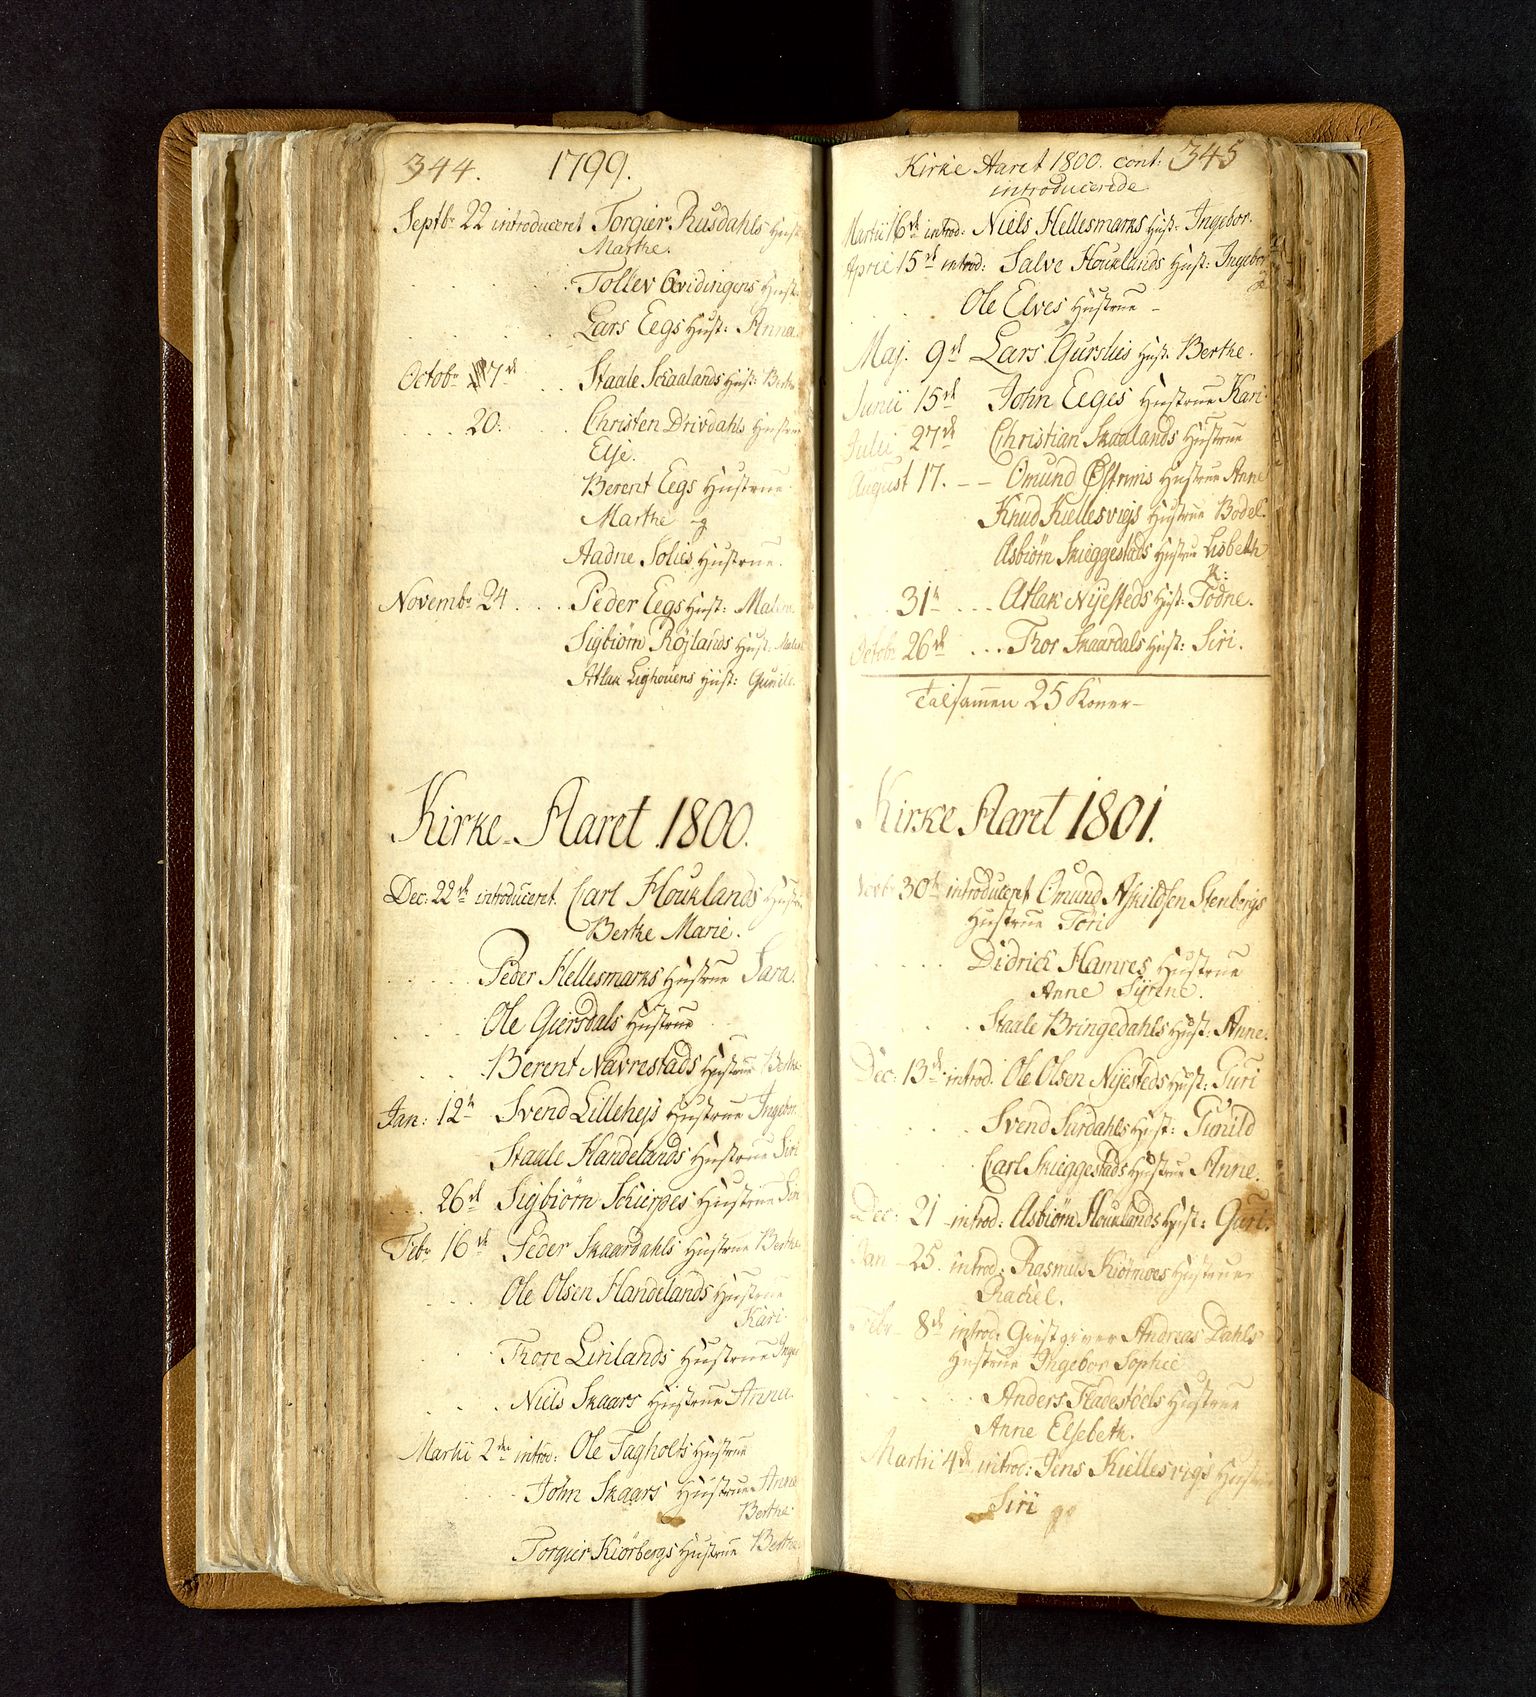 344. 1799.
Septbr 22 introduceret Torgier Rusdahls
Marthe.
Tollev Qvidingens
Lars Eegs Hust: Anna
Octobr 7de Staale Schaalands Hust:
20. Christen Drivdahls Hustrue
Else.
Berent Eegs Hustrue
Marthe
Aadne Solies Hustrue.
Novembr 24 Peder Eegs Hust:
Sigbiørn Røjlands Hust:
Atlak Lighouens Hust: Gunild.
Kirke-Aaret 1800.
Dec: 22de introduceret. Carl Houklands
Berte Marie.
Peder Hellesmarks Hustrue Sara.
Ole Giersdals Hustrue
Berent Navrestads Hustrue
Jan: 12te Svend Lillehejs Hustrue Ingebor
Staale Handelands Hustrue Siri
26de Sigbiørn Schierpes Hustrue
Febr 16de Peder Skaardahls Hustrue Berthe
Ole Olsen Handelands Hustrue
Kari
Thore Linlands Hustrue
Niels Skaars Hustrue Anna
Martii 2den introd: Ole Tagholts Hustrue
John Skaars Hustrue Anne
Berthe
Torgier Kiørbergs Hustrue Berthe
Kirke Aaret 1800. cont: 345
introducerede
Martii 16de introd: Niels Hellesmarks Hust: Ingebor.
April 15de introd: Salve Houklands Hust: Ingebor
Ole Elves Hustrue -
Maj. 9de Lars Gurslies Hust. Berthe.
Junii 15de John Eeges Hustrue Kari
Julii 27de Christian Skaalands Hustrue
August 17. - - Omund Hustrue Anne
Knud Kiellesvigs Hustrue Bodel.
Asbiørn Skieggestads Hustrue Lisbeth
31te ... Atlak Nyesteds Hust: Todne.
Octobr 26de ... Thor Skaardals Hust: Siri.
Talsammen 25 Koner-
Kirke Aaret 1801.
30te introduceret Omund Askildsen Stenbergs
Hustrue Tori
Didrick Hamres Hustrue
Anne Syrine.
Staale Bringedahls Hust: Anne.
Dec: 13de introd. Ole Olsen Nyesteds Hust: Guri
Svend Surdahls Hust: Gunild
Carl Skieggestads Hustrue Anne.
Dec: 21 introd: Asbiørn Houklands Hust: Guri.
Jan 25. introd: Rasmus Kiørmoes Hustrue
Rachel.
Febr 8de introd: Giestgiver Andreas Dahls
Hustrue Ingebor Sophie
Anders Fladestøels Hustrue
Anne Elsebeth.
Martii 4de introd: Jens Kiellesvigs
Siri